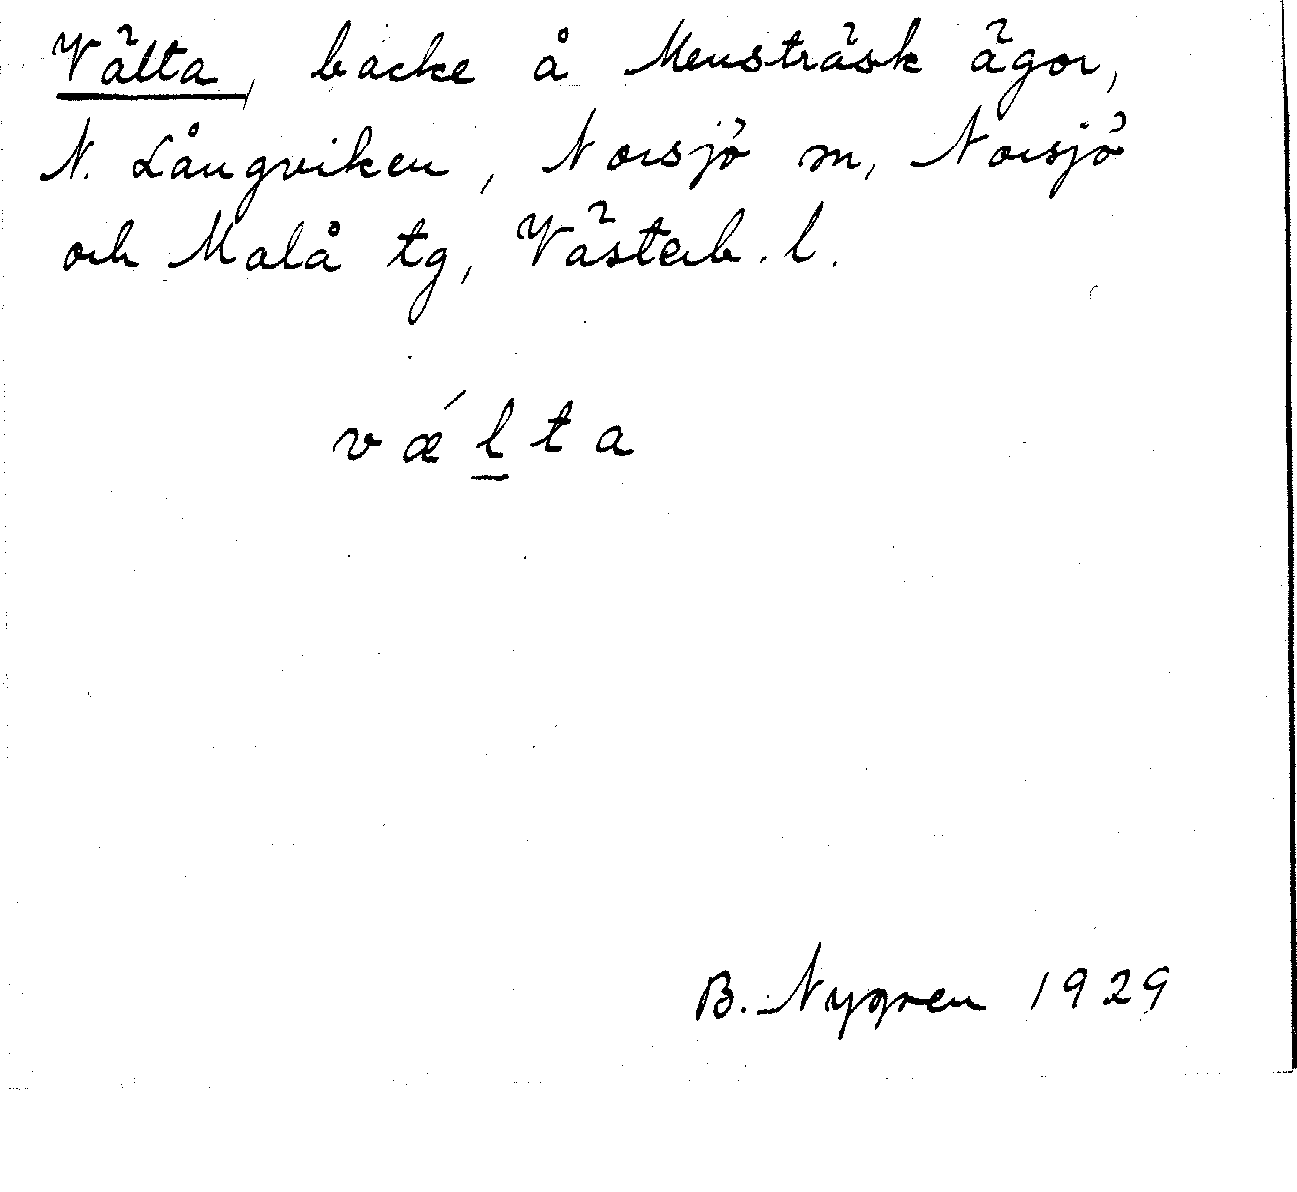 Välta, backe å Mensträsk ägor,
N. Långviken, Norsjö m, Norsjö
och Malå tg, Västerb. l.
vǽl̲ta
B. Nygren 1929